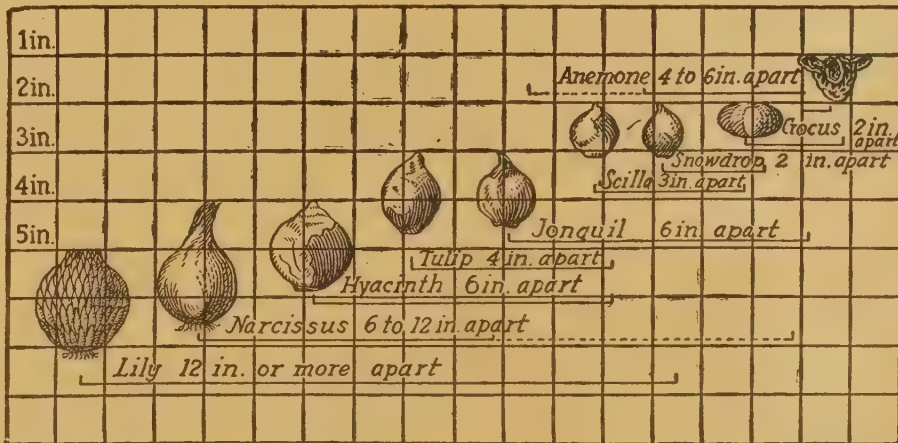 1in.
Anemone 4 to 6in. apart
2in.
Crocus 2in.
apart
3in.
Snowdrop 2 in. apart
4in.
Scilla 3in. apart
5in.
Jonquil 6in. apart
Tulip 4 in. apart
Hyacinth 6in. apart
Narcissus 6 to 12 in. apart
Lily 12 in. or more apart